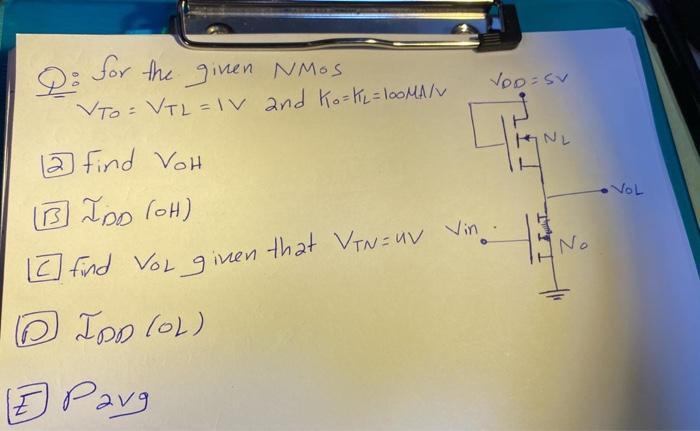 Q: for the given NMOS
VTO = VTL = 1V and KO = KL = 100MA/V
VDD = 5V
NL
[a] find VOH
VOL
[B] IDD (OH)
[C] find VOL given that VTN = 4V
Vin
NO
[D] IDD (OL)
[E] Pavg